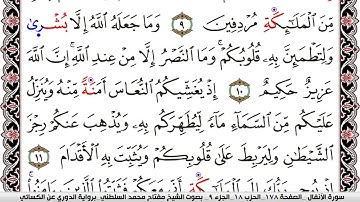 مِّنَ ٱلْمَلَٰٓئِكَةِ مُرْدِفِينَ ٩ وَمَا جَعَلَهُ ٱللَّهُ إِلَّا بُشْرَىٰ
وَلِتَطْمَئِنَّ بِهِۦ قُلُوبُكُمْ ۚ وَمَا ٱلنَّصْرُ إِلَّا مِنْ عِندِ ٱللَّهِ ۚ إِنَّ ٱللَّهَ
عَزِيزٌ حَكِيمٌ ١٠ إِذْ يُغَشِّيكُمُ ٱلنُّعَاسَ أَمَنَةً مِّنْهُ وَيُنَزِّلُ
عَلَيْكُم مِّنَ ٱلسَّمَآءِ مَآءً لِّيُطَهِّرَكُم بِهِۦ وَيُذْهِبَ عَنكُمْ رِجْزَ
ٱلشَّيْطَٰنِ وَلِيَرْبِطَ عَلَىٰ قُلُوبِكُمْ وَيُثَبِّتَ بِهِ ٱلْأَقْدَامَ ١١
سورة الأنفال . الصفحة ١٧٨ . الحزب ١٨ . الجزء ٩ . بصوت الشيخ مفتاح محمد السلطني .برواية الدوري عن الكسائي